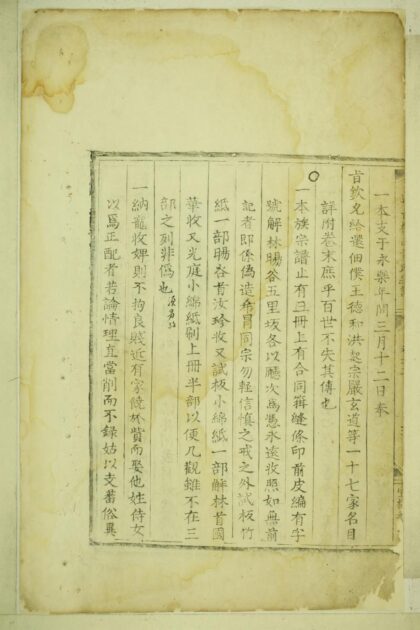 一本支于永樂年間三月十二日奉
旨欽免給還佃僕王德和洪起宗嚴玄道等一十七家名目
詳附卷末庶乎百世不失其傳也
一本族宗譜止有三冊上有合同縫條印前皮編有字
號解林賜谷五里坂各以序次為憑永遠收照如無前
記者即係偽造希冒同宗勿輕信慎之戒之外試板竹
紙一部暘谷首汝珍收又試板小綿紙一部解林首國
華收又光庭小綿紙刷上冊半部以便凡觀雖不在三
部之列非偽也
一納寵收婢則不拘良賤近有家饒於貲而娶他姓侍女
以為正配者若論情理直當削而不錄姑以支蕃俗異